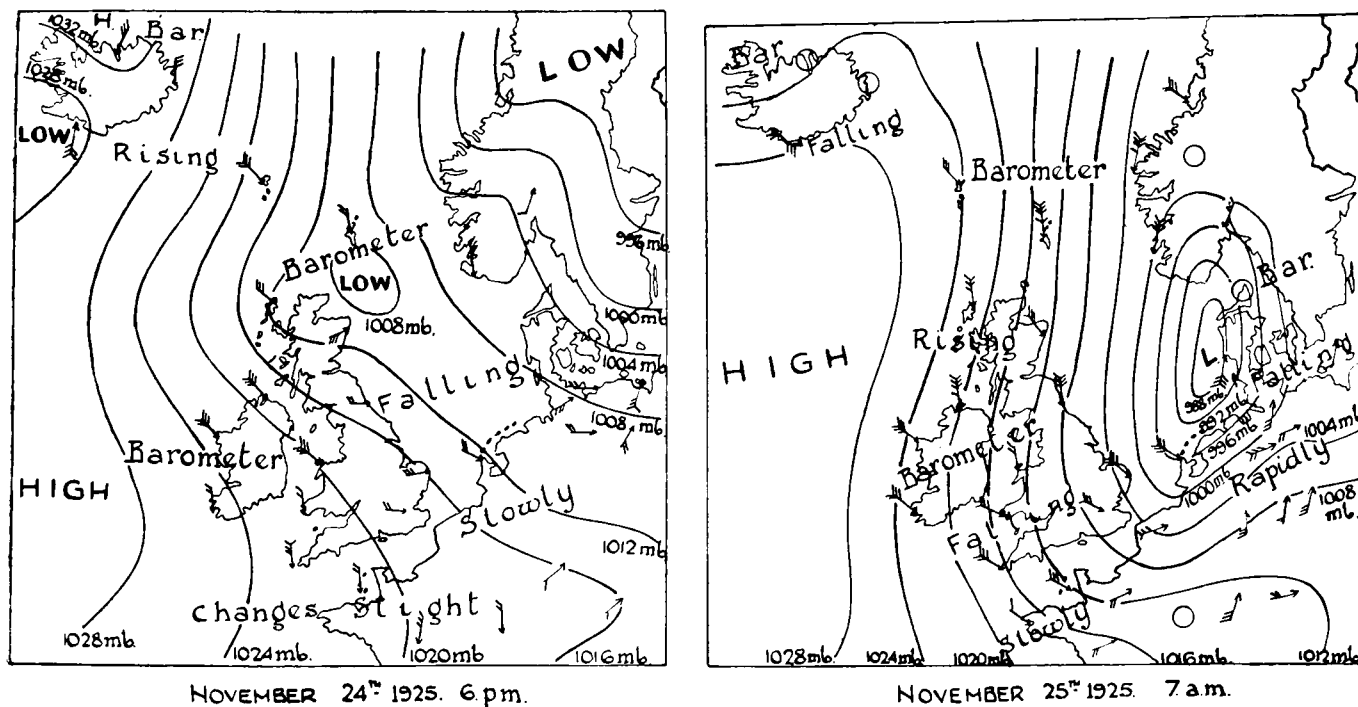 H.
1032 mb.
Bar
1028 mb.
LOW
Rising
LOW
Barometer
LOW
1008 mb.
996 mb.
1000 mb.
1004 mb.
Falling
1008 mb.
Barometer
HIGH
Slowly
1012 mb.
Changes Slight
1028 mb.
1024 mb.
1020 mb.
1016 mb.
NOVEMBER 24TH 1925. 6 p.m.
Bar
Falling
Barometer
Bar.
Rising
HIGH
L
Falling
988 mb.
992 mb.
996 mb.
1004 mb.
Barometer
1000 mb.
Rapidly
1008 mb.
Falling
Slowly
1028 mb.
1024 mb.
1020 mb.
1016 mb.
1012 mb.
NOVEMBER 25TH 1925. 7 a.m.